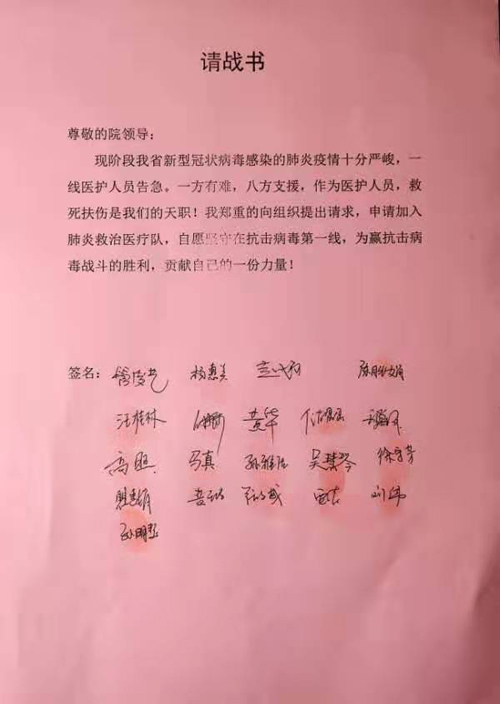 请战书
尊敬的院领导：
现阶段我省新型冠状病毒感染的肺炎疫情十分严峻，一
线医护人员告急。一方有难，八方支援，作为医护人员，救
死扶伤是我们的天职！我郑重的向组织提出请求，申请加入
肺炎救治医疗队，自愿坚守在抗击病毒第一线，为赢抗击病
毒战斗的胜利，贡献自己的一份力量！
签名： 杨惠美
汪桂林 黄华
高照 马真 吴慧琴